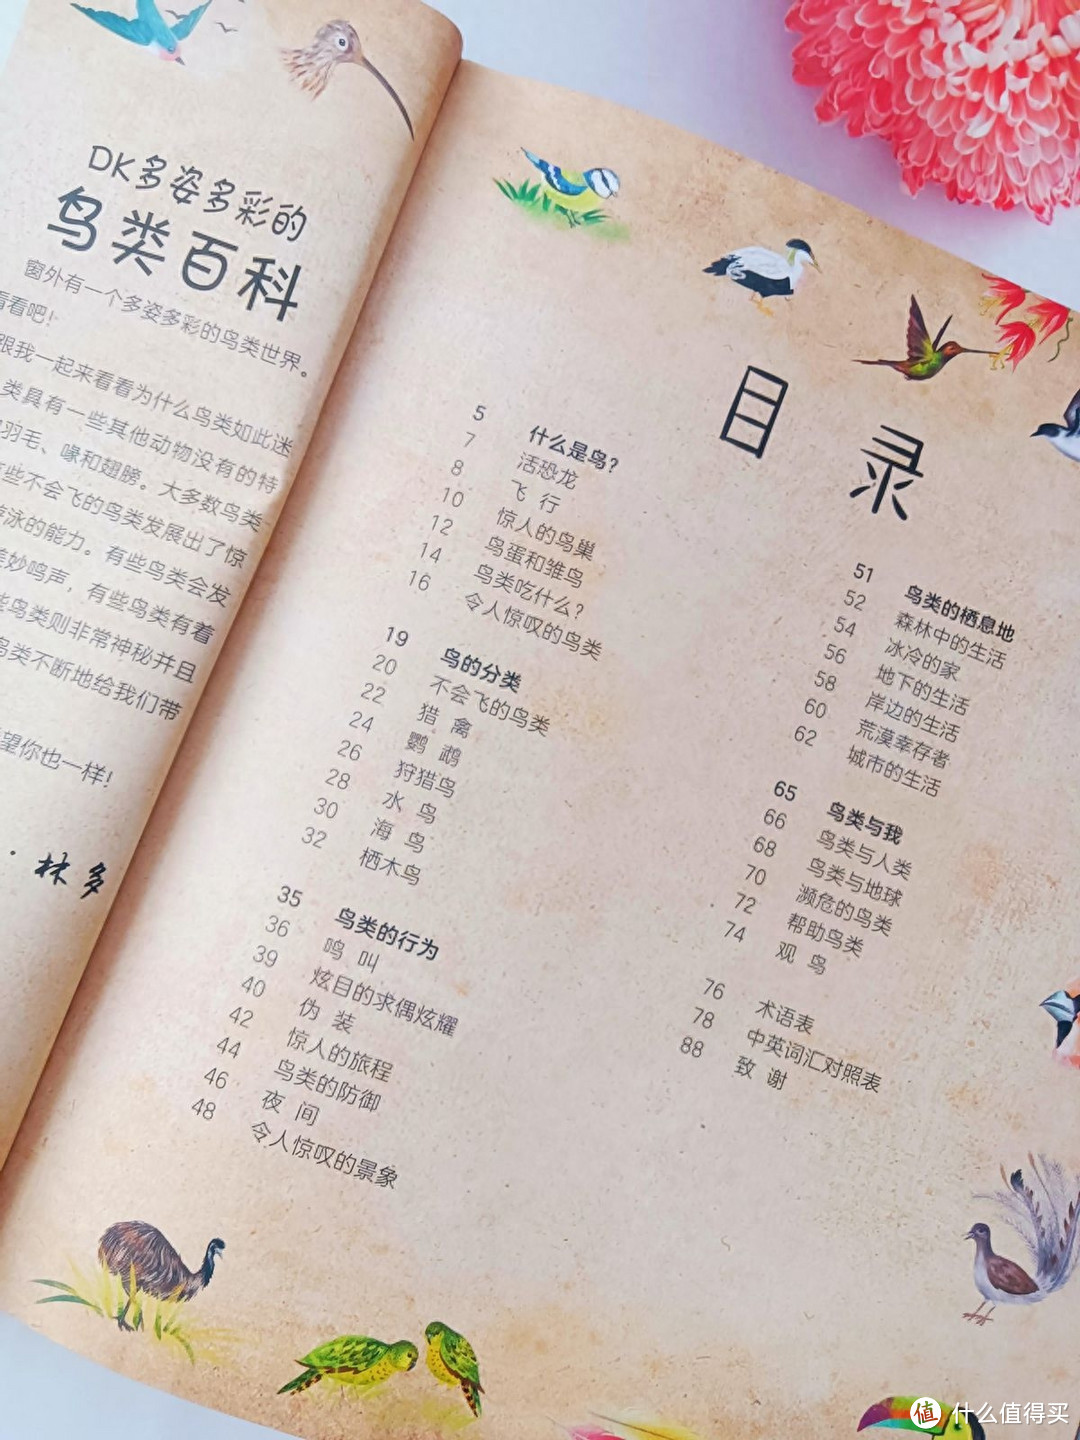 DK多姿多彩的
鸟类百科
窗外有一个多姿多彩的鸟类世界。
看看吧！
跟我一起来看看为什么鸟类如此迷
类具有一些其他动物没有的特
羽毛、喙和翅膀。大多数鸟类
些不会飞的鸟类发展出了惊
游泳的能力。有些鸟类会发
美妙鸣声，有些鸟类有着
些鸟类则非常神秘并且
鸟类不断地给我们带
望你也一样！
· 林多
目 录
5 什么是鸟？
7 活恐龙
8 飞 行
10 惊人的鸟巢
12 鸟蛋和雏鸟
14 鸟类吃什么？
16 令人惊叹的鸟类
19 鸟的分类
20 不会飞的鸟类
22 猎 禽
24 鹦 鹉
26 狩猎鸟
28 水 鸟
30 海 鸟
32 栖木鸟
35 鸟类的行为
36 鸣 叫
39 炫目的求偶炫耀
40 伪 装
42 惊人的旅程
44 鸟类的防御
46 夜 间
48 令人惊叹的景象
51 鸟类的栖息地
52 森林中的生活
54 冰冷的家
56 地下的生活
58 岸边的生活
60 荒漠幸存者
62 城市的生活
65 鸟类与我
66 鸟类与人类
68 鸟类与地球
70 濒危的鸟类
72 帮助鸟类
74 观 鸟
76 术语表
78 中英词汇对照表
88 致 谢
值 什么值得买